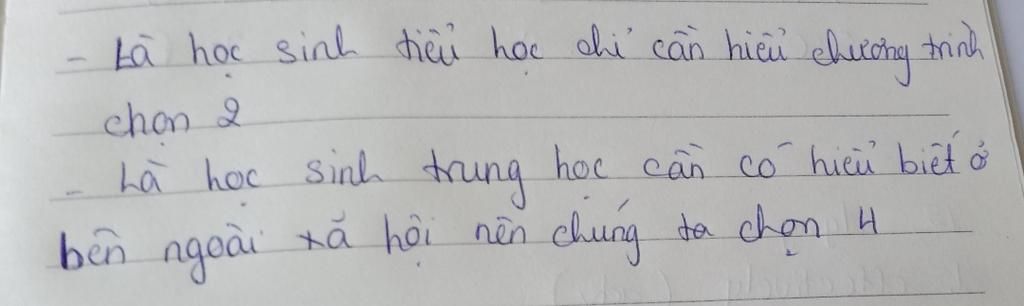 - Là học sinh tiểu học chỉ cần hiểu chương trình
chọn 2
- Là học sinh trung học cần có hiểu biết ở
bên ngoài xã hội nên chúng ta chọn 4